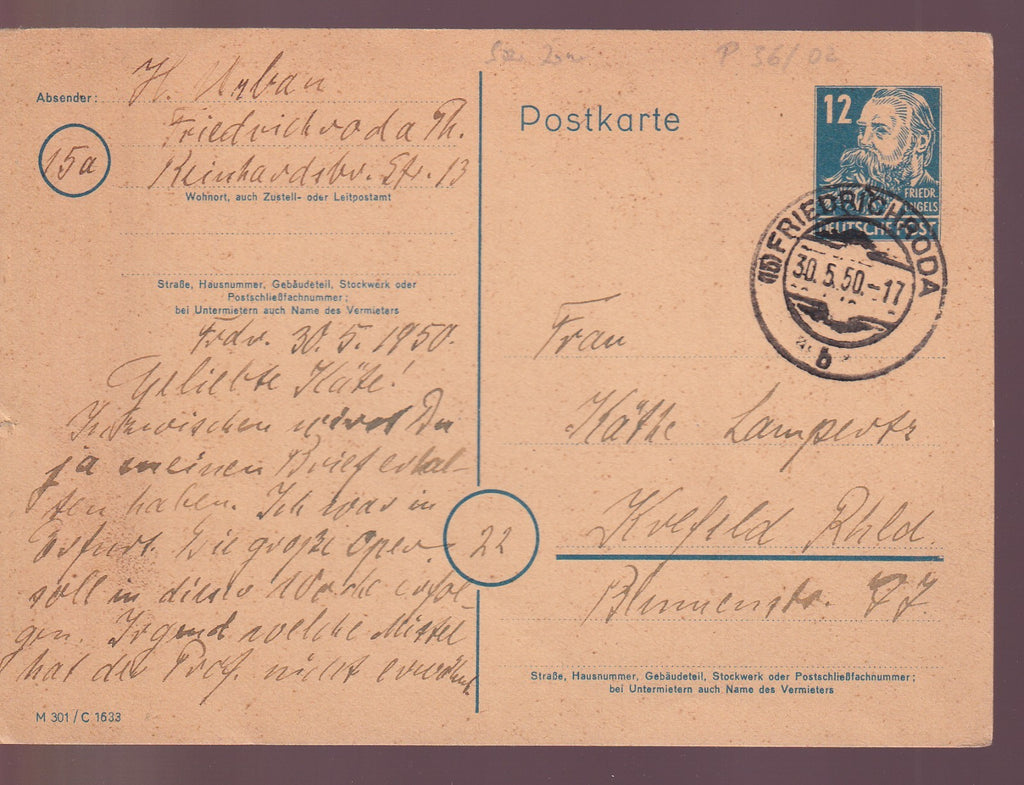 Absender:
H. Urban
Friedrichroda Th.
15a
Reinhardsbr. Str. 13
Wohnort, auch Zustell- oder Leitpostamt
Straße, Hausnummer, Gebäudeteil, Stockwerk oder
Postschließfachnummer;
bei Untermietern auch Name des Vermieters
Frdr. 30. 5. 1950.
Geliebte Käte!
Inzwischen wirst Du
ja meinen Brief erhal-
ten haben. Ich war in
Erfurt. Die große Oper
soll in dieser Woche erfol-
gen. Irgend welche Mittel
hat der Prof. nicht erwähnt
M 301 / C 1633
P 36/02
Postkarte
12
FRIEDR.
ENGELS
DEUTSCHE POST
15 FRIEDRICHRODA
30.5.50.-17
b
Frau
Käthe Lampertz
22
Krefeld Rhld.
Blumenstr. 77
Straße, Hausnummer, Gebäudeteil, Stockwerk oder Postschließfachnummer;
bei Untermietern auch Name des Vermieters